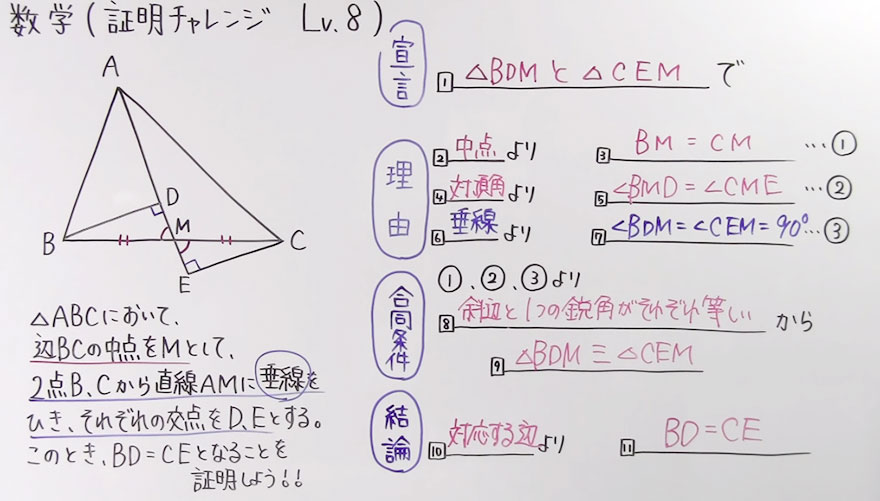 数学(証明チャレンジ Lv.8)
A
D
B
M
C
E
△ABCにおいて、
辺BCの中点をMとして、
2点B、Cから直線AMに垂線を
ひき、それぞれの交点をD、Eとする。
このとき、BD=CEとなることを
証明しよう!!
宣言
1 △BDMと△CEM で
理由
2 中点より 3 BM=CM …①
4 対頂角より 5 ∠BMD=∠CME …②
6 垂線より 7 ∠BDM=∠CEM=90°…③
合同条件
①、②、③より
8 斜辺と1つの鋭角がそれぞれ等しい から
9 △BDM≡△CEM
結論
10 対応する辺より 11 BD=CE